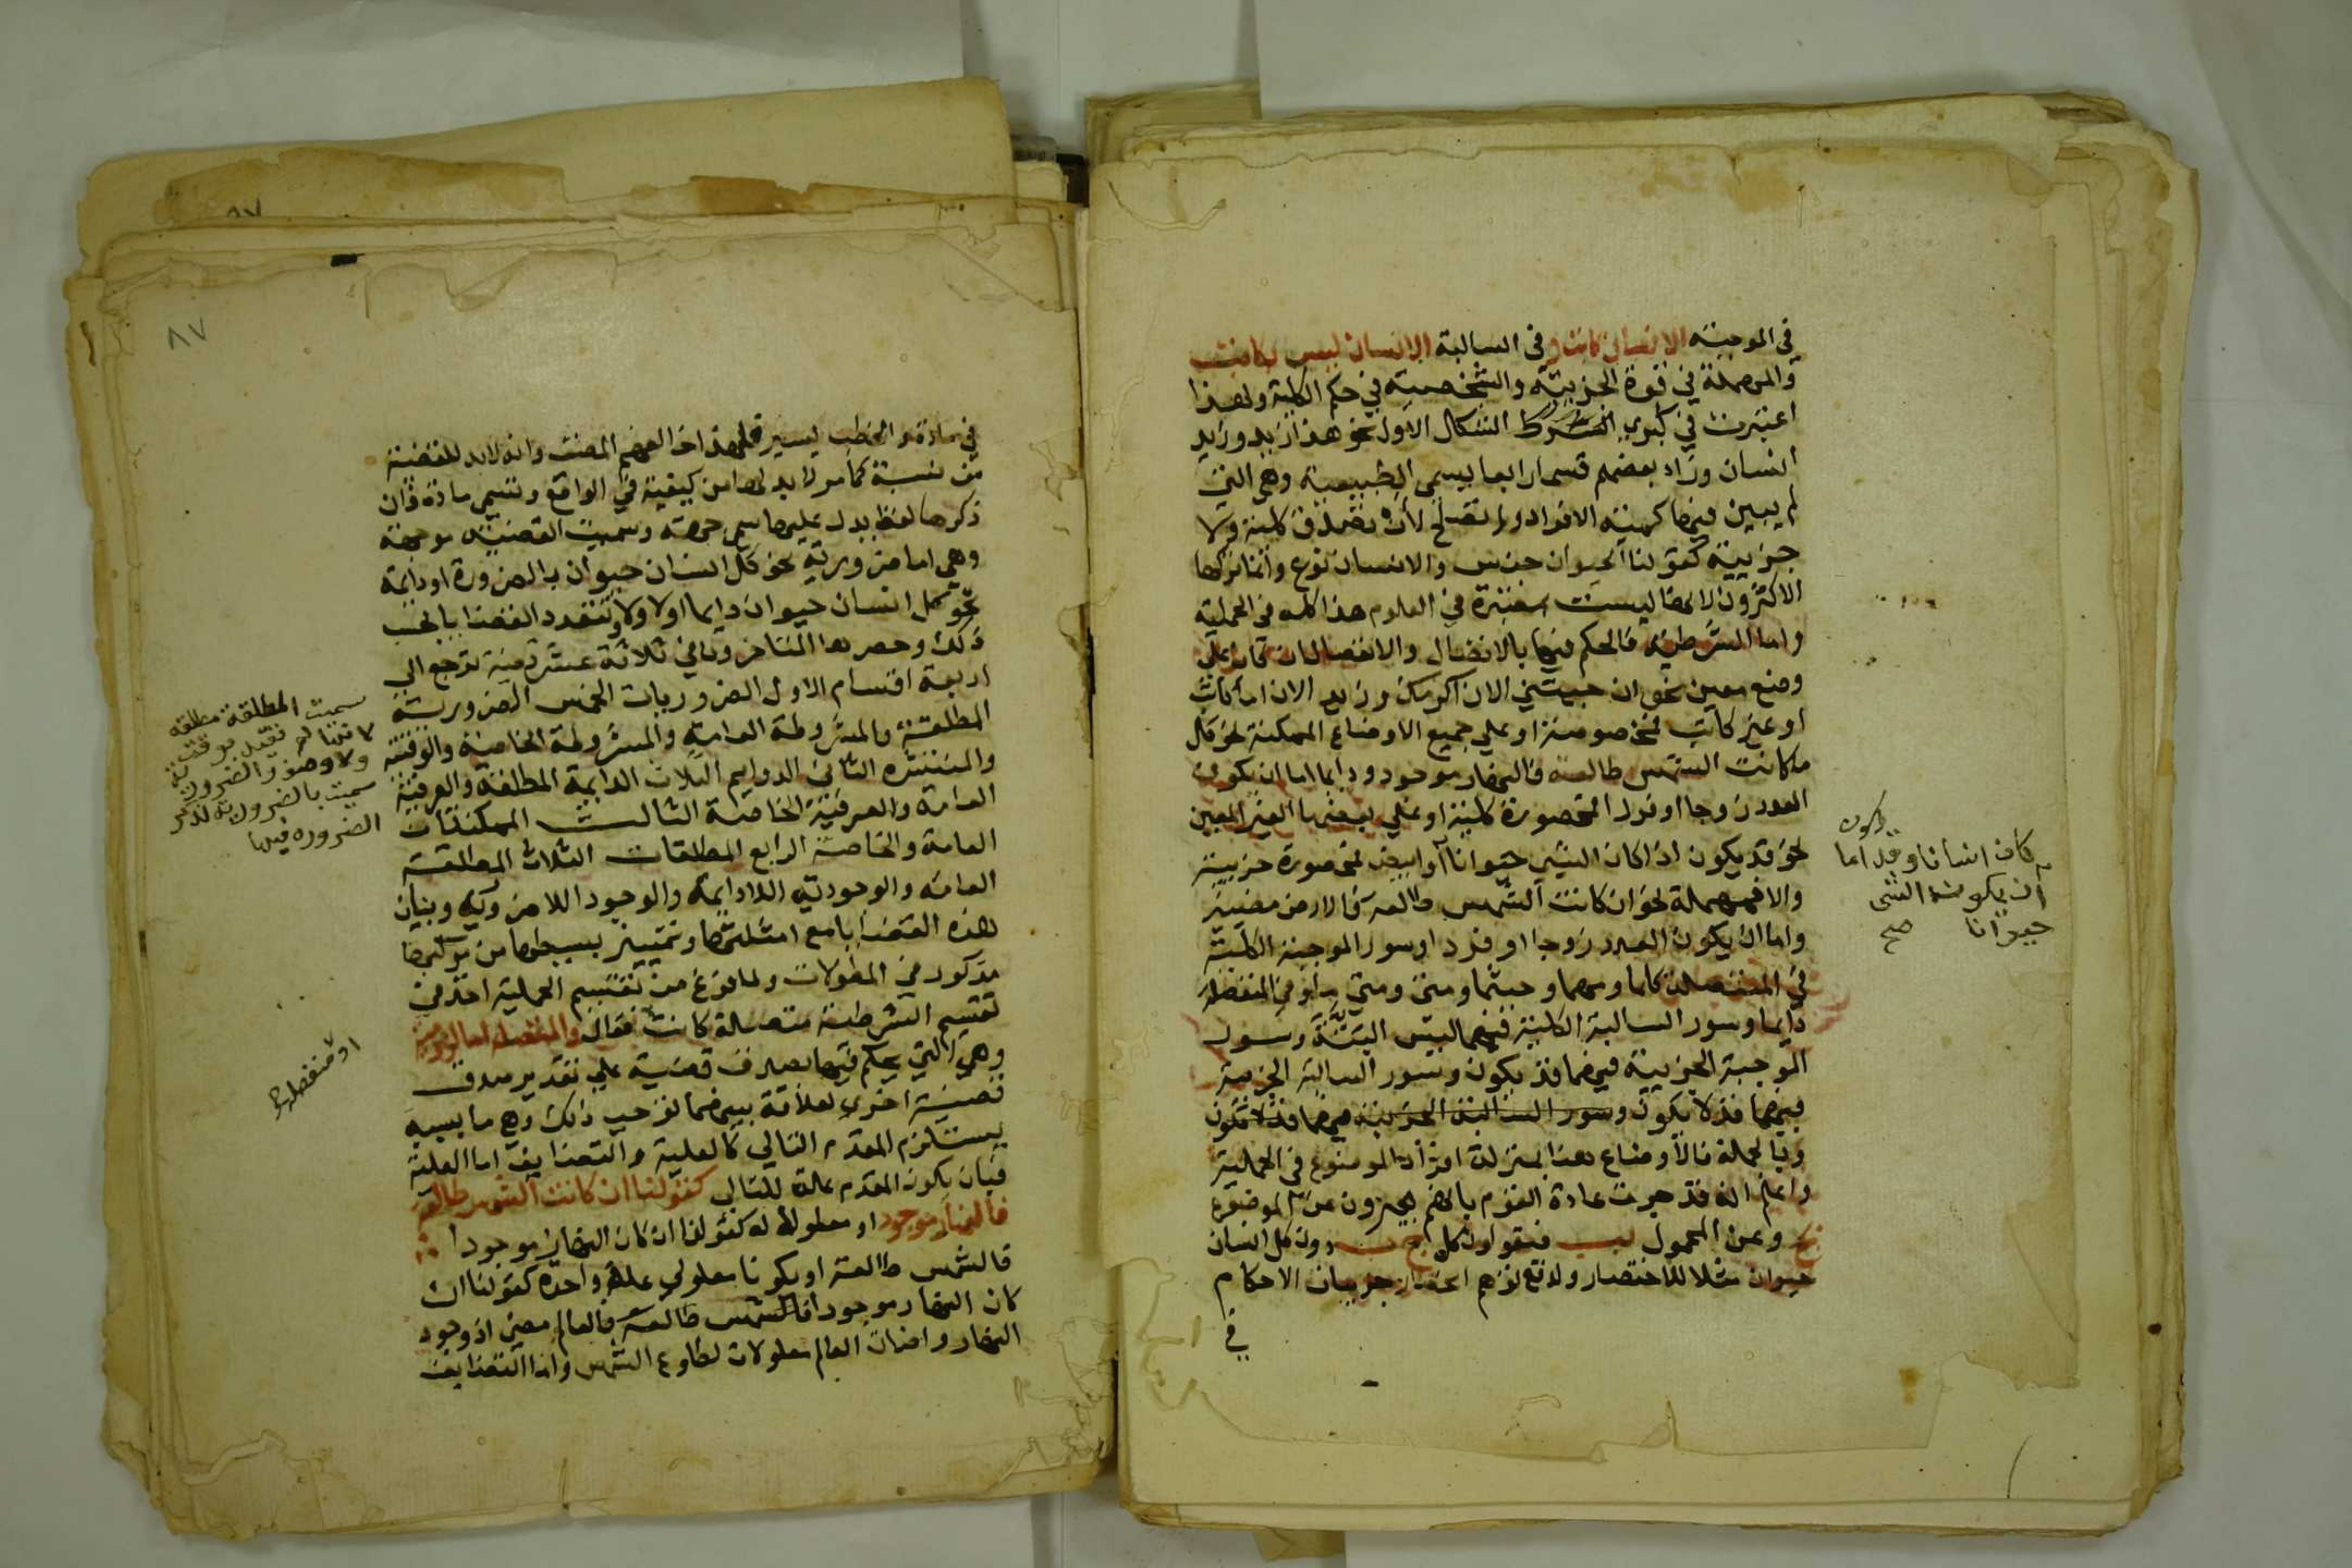 في الموجبة الانسان كاتب وفي السالبة الانسان ليس بكاتب
والمهملة في قوة الجزيية والشخصية في حكم الكلية ولهذا
اعتبرت في كبري الشكل الاول نحو هذا زيد وزيد
انسان وزاد بعضهم قسما رابعا يسمي الطبيعية وهي التي
لم يبين فيها كمية الافراد ولم تصلح لأن تصدق كلية ولا
جزيية كقولنا الحيوان جنس والانسان نوع وانما تركها
الاكثرون لانها ليست معتبرة في العلوم هذا كله في الحملية
واما الشرطية فالحكم فيها بالاتصال والانفصال ان كان علي
وضع معين نحو ان جيتني الان اكرمتك وزيد الان اما كاتب
او غير كاتب فمخصوصة او علي جميع الاوضاع الممكنة نحو كل
ما كانت الشمس طالعة فالنهار موجود ودايما اما ان يكون
العدد زوجا او فردا فمحصورة كلية او علي بعضها الغير المعين
نحو قد يكون اذا كان الشي حيوانا او ابيض فمحصورة جزيية
والا فمهملة نحو ان كانت الشمس طالعة فالارض مضيية
واما ان يكون العدد زوجا او فردا وسور الموجبة الكلية
في المتصلة كلما ومهما وحيثما ومتي ومتي ما وفي المنفصلة
دايما وسور السالبة الكلية فيهما ليس البتة وسور
الموجبة الجزيية فيهما قد يكون وسور السالبة الجزيية
فيهما قد لا يكون وسور السالبة الجزيية فيهما قد لا تكون
وبالجملة فالأوضاع هنا بمنزلة افراد الموضوع في الحملية
واعلم انه قد جرت عادة القوم بانهم يعبرون عن الموضوع
بج وعن المحمول بب فيقولون كل ج ب دون كل انسان
حيوان مثلا للاختصار ولدفع توهم انحصار جزييات الاحكام
في
كان انسانا وقد اما
أن يكون الشي
حيوانا صح
٨٧
في مادة والخطب يسير فلهذا اخر المصنف وانه لابد للقضية
من نسبة كما مر لابد لها من كيفية في الواقع وتسمي مادة فان
ذكرها لفظ يدل عليها سمي جهة وسميت القضية موجهة
وهي اما ضرورية نحو كل انسان حيوان بالضرورة او دايمة
نحو كل انسان حيوان دايما اولا ولا وتتعدد القضايا بحسب
ذلك وحصرها المتاخرون في ثلاثة عشر قضية ترجع الي
اربعة اقسام الاول الضروريات الخمس الضرورية
المطلقة والمشروطة العامة والمشروطة الخاصة والوقتية
والمنتشرة الثاني الدوايم الثلاث الدايمة المطلقة والعرفية
العامة والعرفية الخاصة الثالث الممكنتان
العامة والخاصة الرابع المطلقات الثلاث المطلقة
العامة والوجودية اللادايمة والوجود اللاضرورية وبيان
هذه القضايا مع امثلتها وتمييز بسيطها من مركبها
مذكور في المطولات ولما فرغ من تقسيم الحملية اخذ في
تقسيم الشرطية متصلة كانت فقال والمتصلة اما لزومية
وهي التي يحكم فيها بصدق قضية علي تقدير صدق
قضية اخري لعلاقة بينهما توجب ذلك وهي ما بسببه
يستلزم المقدم التالي كالعلية والتضايف اما العلية
فبان يكون المقدم علة للتالي كقولنا ان كانت الشمس طالعة
فالنهار موجود او معلولا له كقولنا ان كان النهار موجودا
فالشمس طالعة او يكونا معلولي علة واحدة كقولنا ان
كان النهار موجودا فالعالم مضي اذ وجود
النهار واضاة العالم معلولان لطلوع الشمس واما التضايف
سميت المطلقة مطلقه
لانها لم تقيد بوقت
ولا وصف والضرورية
سميت بالضرورية لذكر
الضروره فيها
او منفصلة